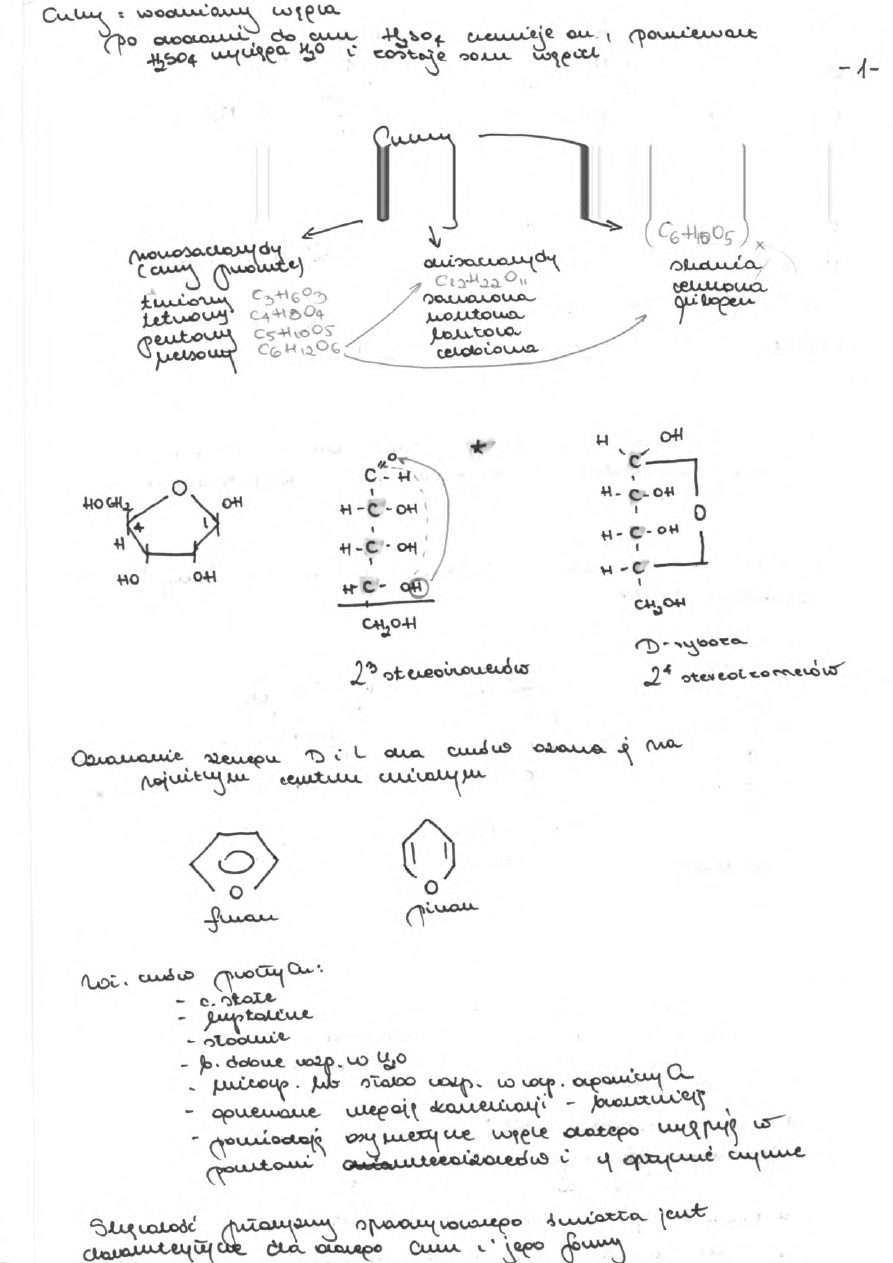 Cukry = wodziany węgla
po dodaniu do cukru H₂SO₄ ciemnieje on, ponieważ
H₂SO₄ wyciąga H₂O i zostaje sam węgiel
-1-
Cukry
monosacharydy
(cukry proste)
triozy C₃H₆O₃
tetrozy C₄H₈O₄
pentozy C₅H₁₀O₅
heksozy C₆H₁₂O₆
disacharydy
C₁₂H₂₂O₁₁
sacharoza
maltoza
laktoza
celobioza
(C₆H₁₀O₅)ₓ
skrobia
celuloza
glikogen
HOCH₂ O OH
4 1
H
HO OH
*
C = O
C - H
H - C - OH
H - C - OH
H - C - OH
CH₂OH
2³ stereoizomerów
H OH
C
H - C - OH
H - C - OH
O
H - C
CH₂OH
D-ryboza
2⁴ stereoizomerów
Oznaczanie szeregu D i L dla cukrów oznacza się na
najniższym centrum chiralnym
O
furan
O
piran
wł. cukrów prostych:
- c. stałe
- krystaliczne
- słodkie
- b. dobrze rozp. w H₂O
- nierozp. lub słabo rozp. w rozp. organicznych
- ogrzewane ulegają karmelizacji - brązowieją
- posiadają asymetryczne węgle dlatego występują w
postaci i są optycznie czynne
Skręcalność płaszczyzny spolaryzowanego światła jest
charakterystyczne dla danego cukru i jego formy